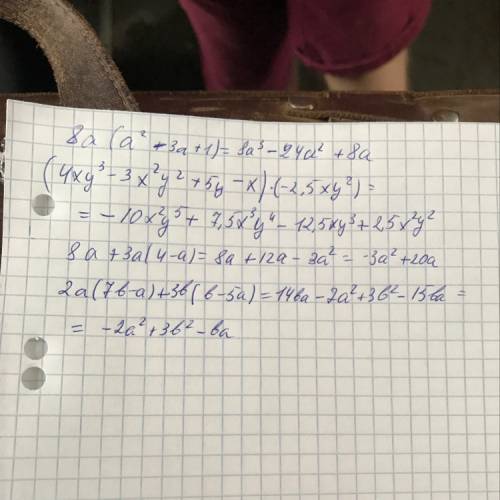 8a (a² - 3a + 1) = 8a³ - 24a² + 8a
(4xy³ - 3x²y² + 5y - x)·(-2,5xy²) =
= -10x²y⁵ + 7,5x³y⁴ - 12,5xy³ + 2,5x²y²
8a + 3a(4-a) = 8a + 12a - 3a² = -3a² + 20a
2a(7b-a) + 3b(b-5a) = 14ba - 2a² + 3b² - 15ba =
= -2a² + 3b² - ba